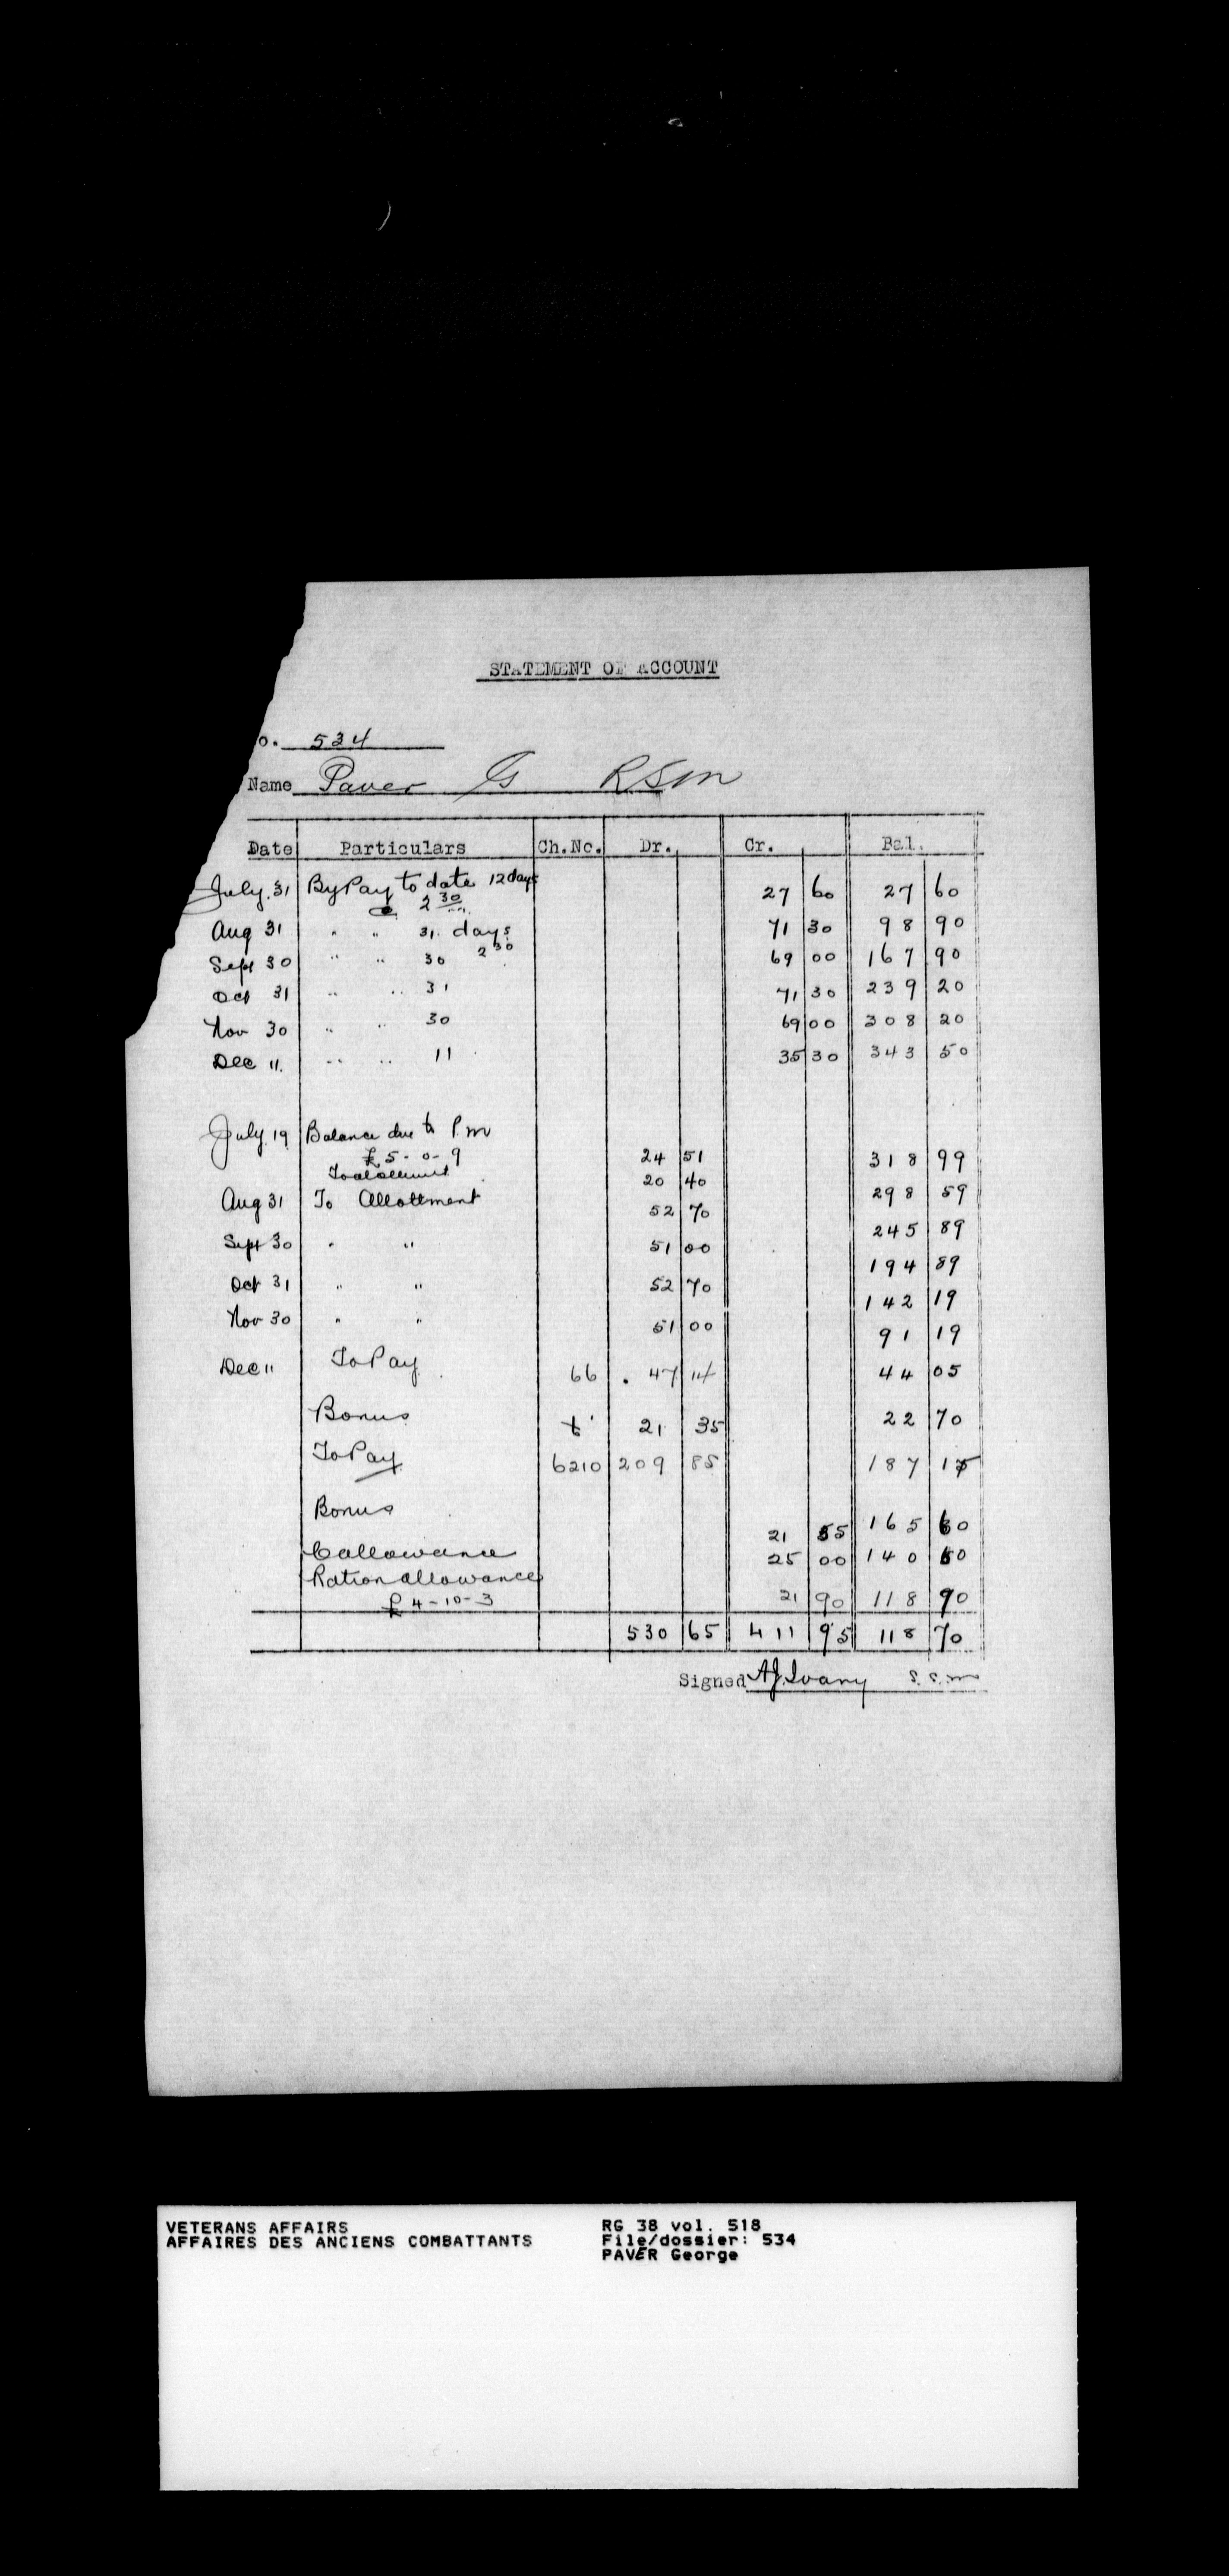 STATEMENT OF ACCOUNT
o. 534
Name Paver G RSM
Date Particulars Ch.No. Dr. Cr. Bal.
July 31 By Pay to date 12 days 27 60 27 60
@ 2 30
Aug 31 " " 31 days 71 30 98 90
Sept 30 " " 30 2 30 69 00 167 90
Oct 31 " " 31 71 30 239 20
Nov 30 " " 30 69 00 308 20
Dec 11. " " 11 35 30 343 50
July 19 Balance due to P.M
£5-0-9 24 51 318 99
To allotment 20 40 298 59
Aug 31 To Allottment 52 70 245 89
Sept 30 " " 51 00 194 89
Oct 31 " " 52 70 142 19
Nov 30 " " 51 00 91 19
Dec 11 To Pay 66 47 14 44 05
Bonus 21 35 22 70
To Pay 6210 209 85 187 15
Bonus 21 55 165 60
C allowance 25 00 140 60
Ration allowance
£4-10-3 21 90 118 90
530 65 411 95 118 70
Signed A.J. Ivany S.S.M
VETERANS AFFAIRS RG 38 vol. 518
AFFAIRES DES ANCIENS COMBATTANTS File/dossier: 534
PAVER George